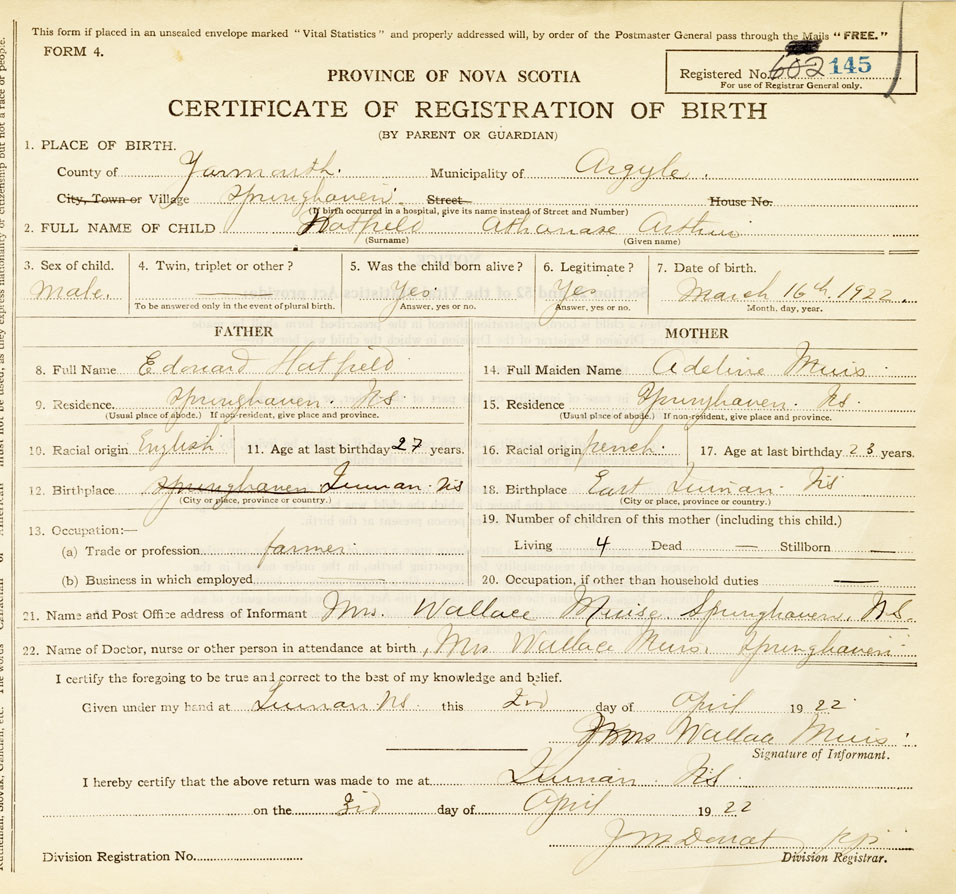 This form if placed in an unsealed envelope marked "Vital Statistics" and properly addressed will, by order of the Postmaster General pass through the Mails "FREE."
FORM 4.
Registered No. 602 145
For use of Registrar General only.
PROVINCE OF NOVA SCOTIA
CERTIFICATE OF REGISTRATION OF BIRTH
(BY PARENT OR GUARDIAN)
1. PLACE OF BIRTH.
County of Yarmouth. Municipality of Argyle.
City, Town or Village Springhaven. Street House No.
(If birth occurred in a hospital, give its name instead of Street and Number)
2. FULL NAME OF CHILD Hatfield Athanase Arthur
(Surname) (Given name)
3. Sex of child. 4. Twin, triplet or other? 5. Was the child born alive? 6. Legitimate? 7. Date of birth.
Male. Yes. Yes March 16th 1922.
To be answered only in the event of plural birth. Answer, yes or no. Answer, yes or no. Month, day, year.
FATHER MOTHER
8. Full Name Edouard Hatfield 14. Full Maiden Name Adeline Muis
9. Residence. Springhaven. NS 15. Residence Springhaven. NS.
(Usual place of abode.) If non-resident, give place and province. (Usual place of abode.) If non-resident, give place and province.
10. Racial origin English 11. Age at last birthday 27 years. 16. Racial origin french. 17. Age at last birthday 23 years.
12. Birthplace Springhaven NS 18. Birthplace East NS
(City or place, province or country.) (City or place, province or country.)
13. Occupation:— 19. Number of children of this mother (including this child.)
(a) Trade or profession farmer Living 4 Dead — Stillborn —
(b) Business in which employed — 20. Occupation, if other than household duties —
21. Name and Post Office address of Informant Mrs. Wallace Muise, Springhaven, NS.
22. Name of Doctor, nurse or other person in attendance at birth, Mrs Wallace Muis. Springhaven
I certify the foregoing to be true and correct to the best of my knowledge and belief.
Given under my hand at NS. this 2nd day of April 1922
Mrs Wallace Muis
Signature of Informant.
I hereby certify that the above return was made to me at NS.
on the 3rd day of April 1922
Division Registration No. Division Registrar.